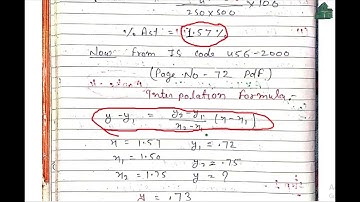 × 100
250×500
% Ast = 1.57 %
Now from IS code 456-2000
(Page No - 72 Pdf)
Interpolation Formula:-
y-y₁ = y₂-y₁/x₂-x₁ (x-x₁)
x = 1.57 y₁ = .72
x₁ = 1.50 y₂ = .75
x₂ = 1.75 y = ?
y = .73